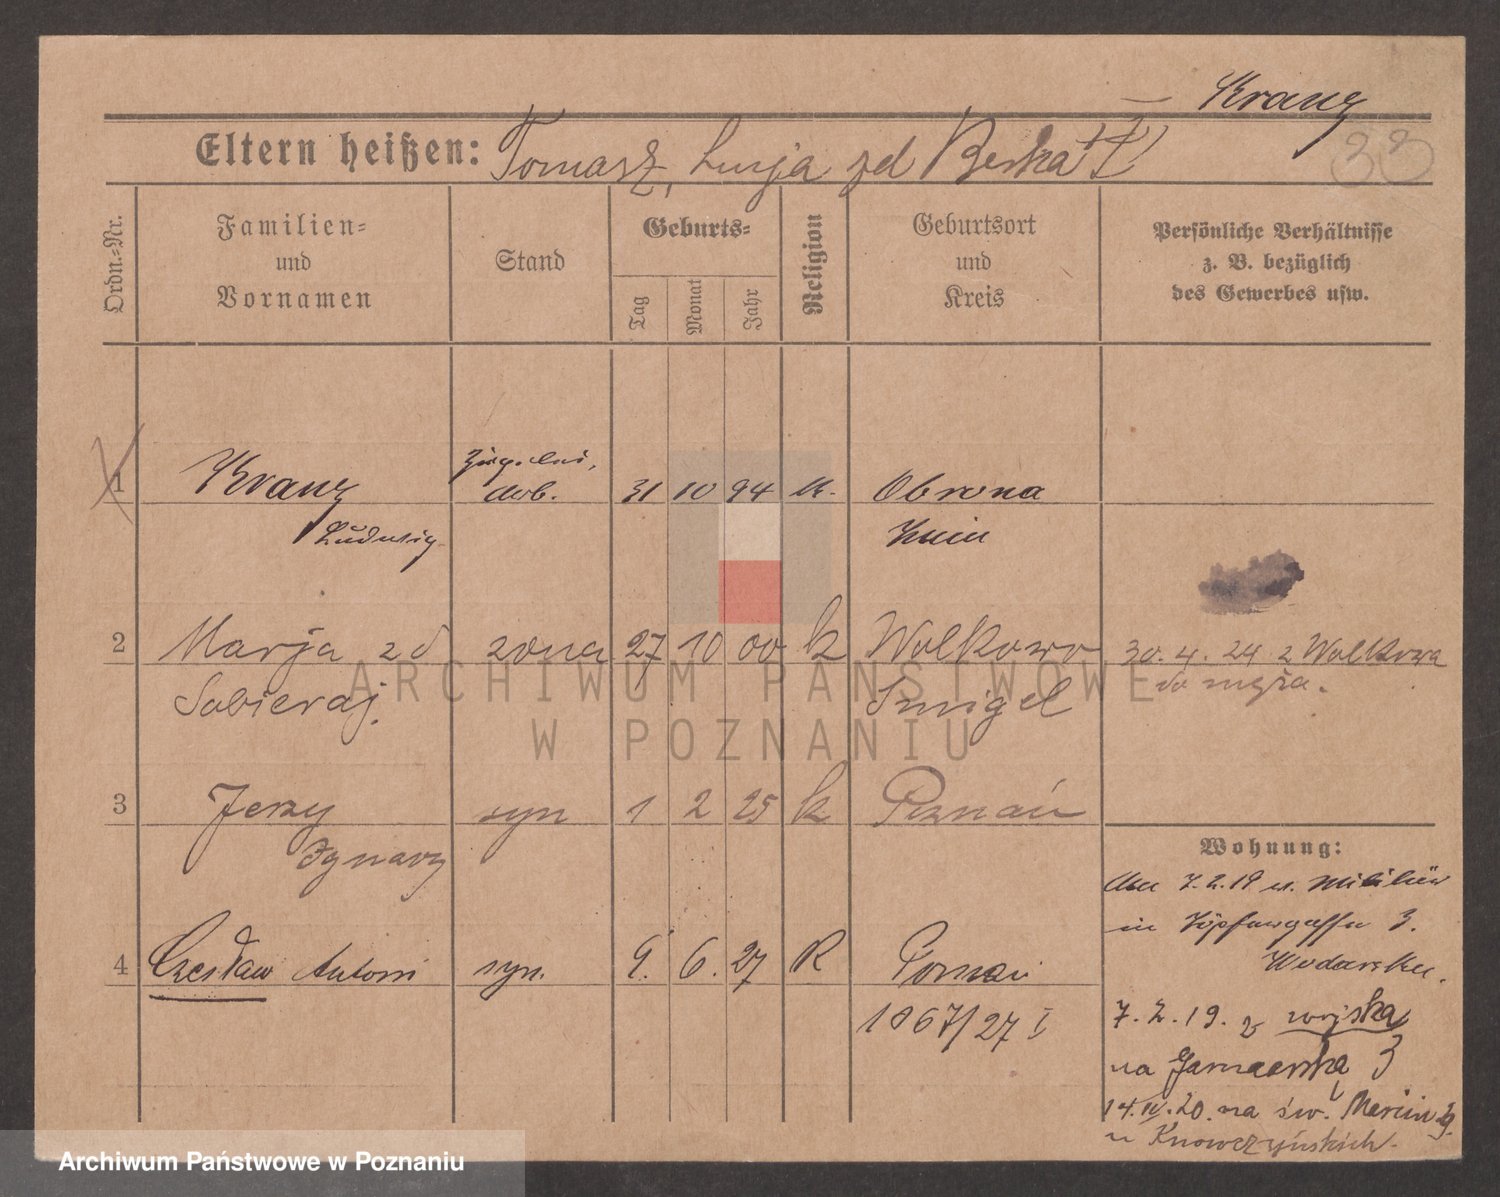 Kranz
Eltern heißen: Tomasz, Lucja zd Beska
33
Ordn.-Nr.
Familien-
und
Vornamen
Stand
Geburts-
Tag
Monat
Jahr
Religion
Geburtsort
und
Kreis
Persönliche Verhältnisse
z. B. bezüglich
des Gewerbes usw.
1 Kranz arb. 31 10 94 k. Obrona
Ludwig Znin
2 Marja zd żona 27 10 00 k Wolkowo 30.4.24 z Wolkowa
Sobieraj. Smigel do męża.
3 Jerzy syn 1 2 25 k Poznań
Ignacy
Wohnung:
7.2.19 v. Militär
in Töpfergasse 3.
4 Czesław Antoni syn. 9. 6. 27 R Poznań
1867/27 I
7.2.19. z wojska
na Garncarska 3
14.IV.20. na św. Marcin 39
u Knowczyńskich.
ARCHIWUM PAŃSTWOWE
W POZNANIU
Archiwum Państwowe w Poznaniu